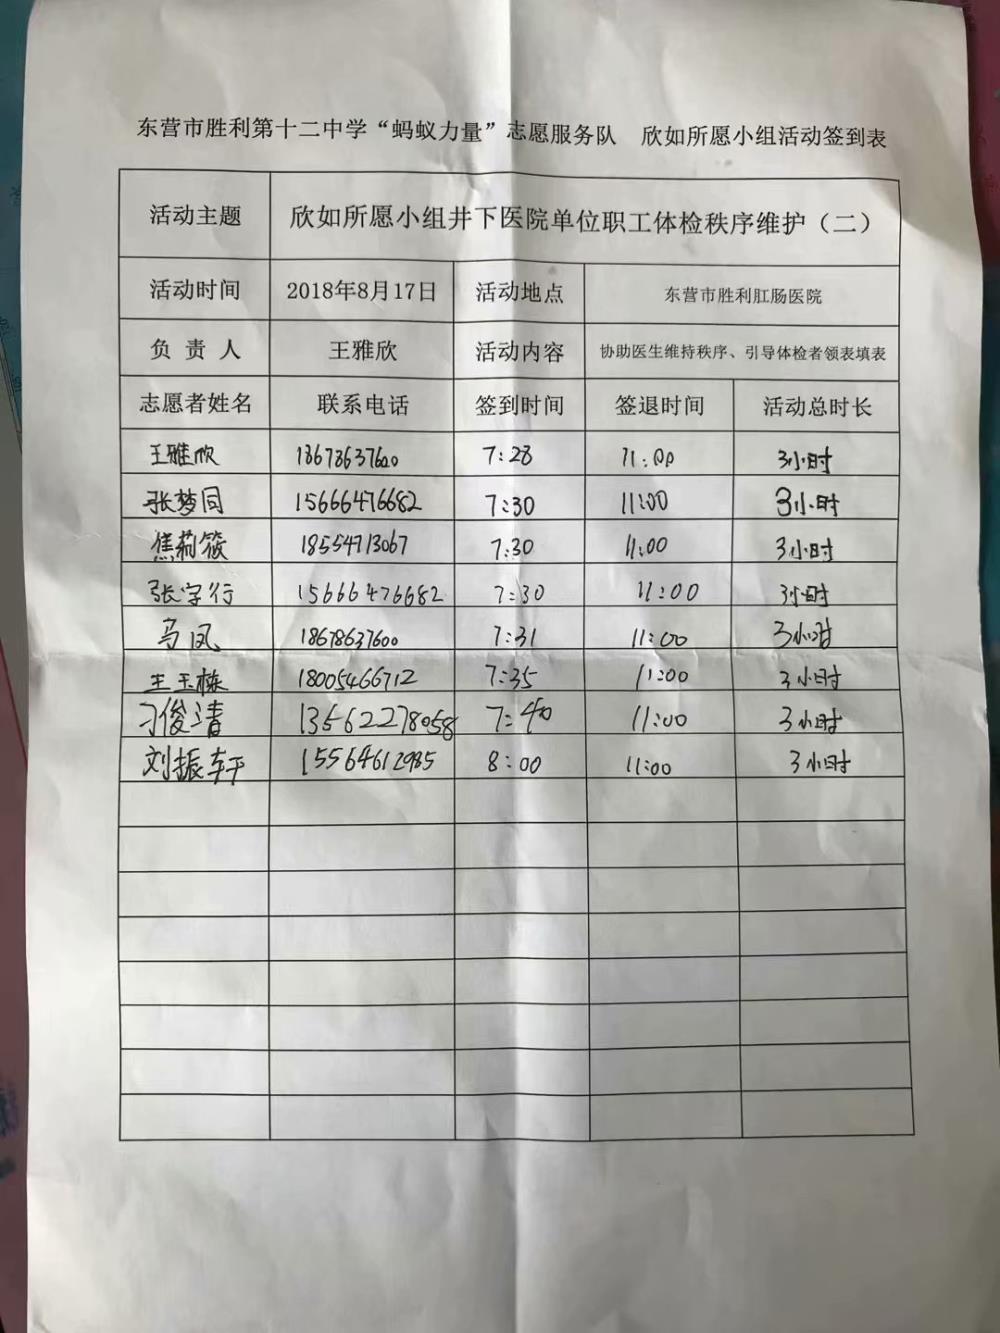 东营市胜利第十二中学“蚂蚁力量”志愿服务队 欣如所愿小组活动签到表
活动主题 欣如所愿小组井下医院单位职工体检秩序维护（二）
活动时间 2018年8月17日 活动地点 东营市胜利肛肠医院
负责人 王雅欣 活动内容 协助医生维持秩序、引导体检者领表填表
志愿者姓名 联系电话 签到时间 签退时间 活动总时长
王雅欣 18678637600 7:28 11:00 3小时
张梦同 15666476682 7:30 11:00 3小时
焦莉筱 18554713067 7:30 11:00 3小时
张字行 15666476682 7:30 11:00 3小时
马凤 18678637600 7:31 11:00 3小时
王玉栋 18005466712 7:35 11:00 3小时
刁俊清 13562278058 7:40 11:00 3小时
刘振轩 15564612985 8:00 11:00 3小时